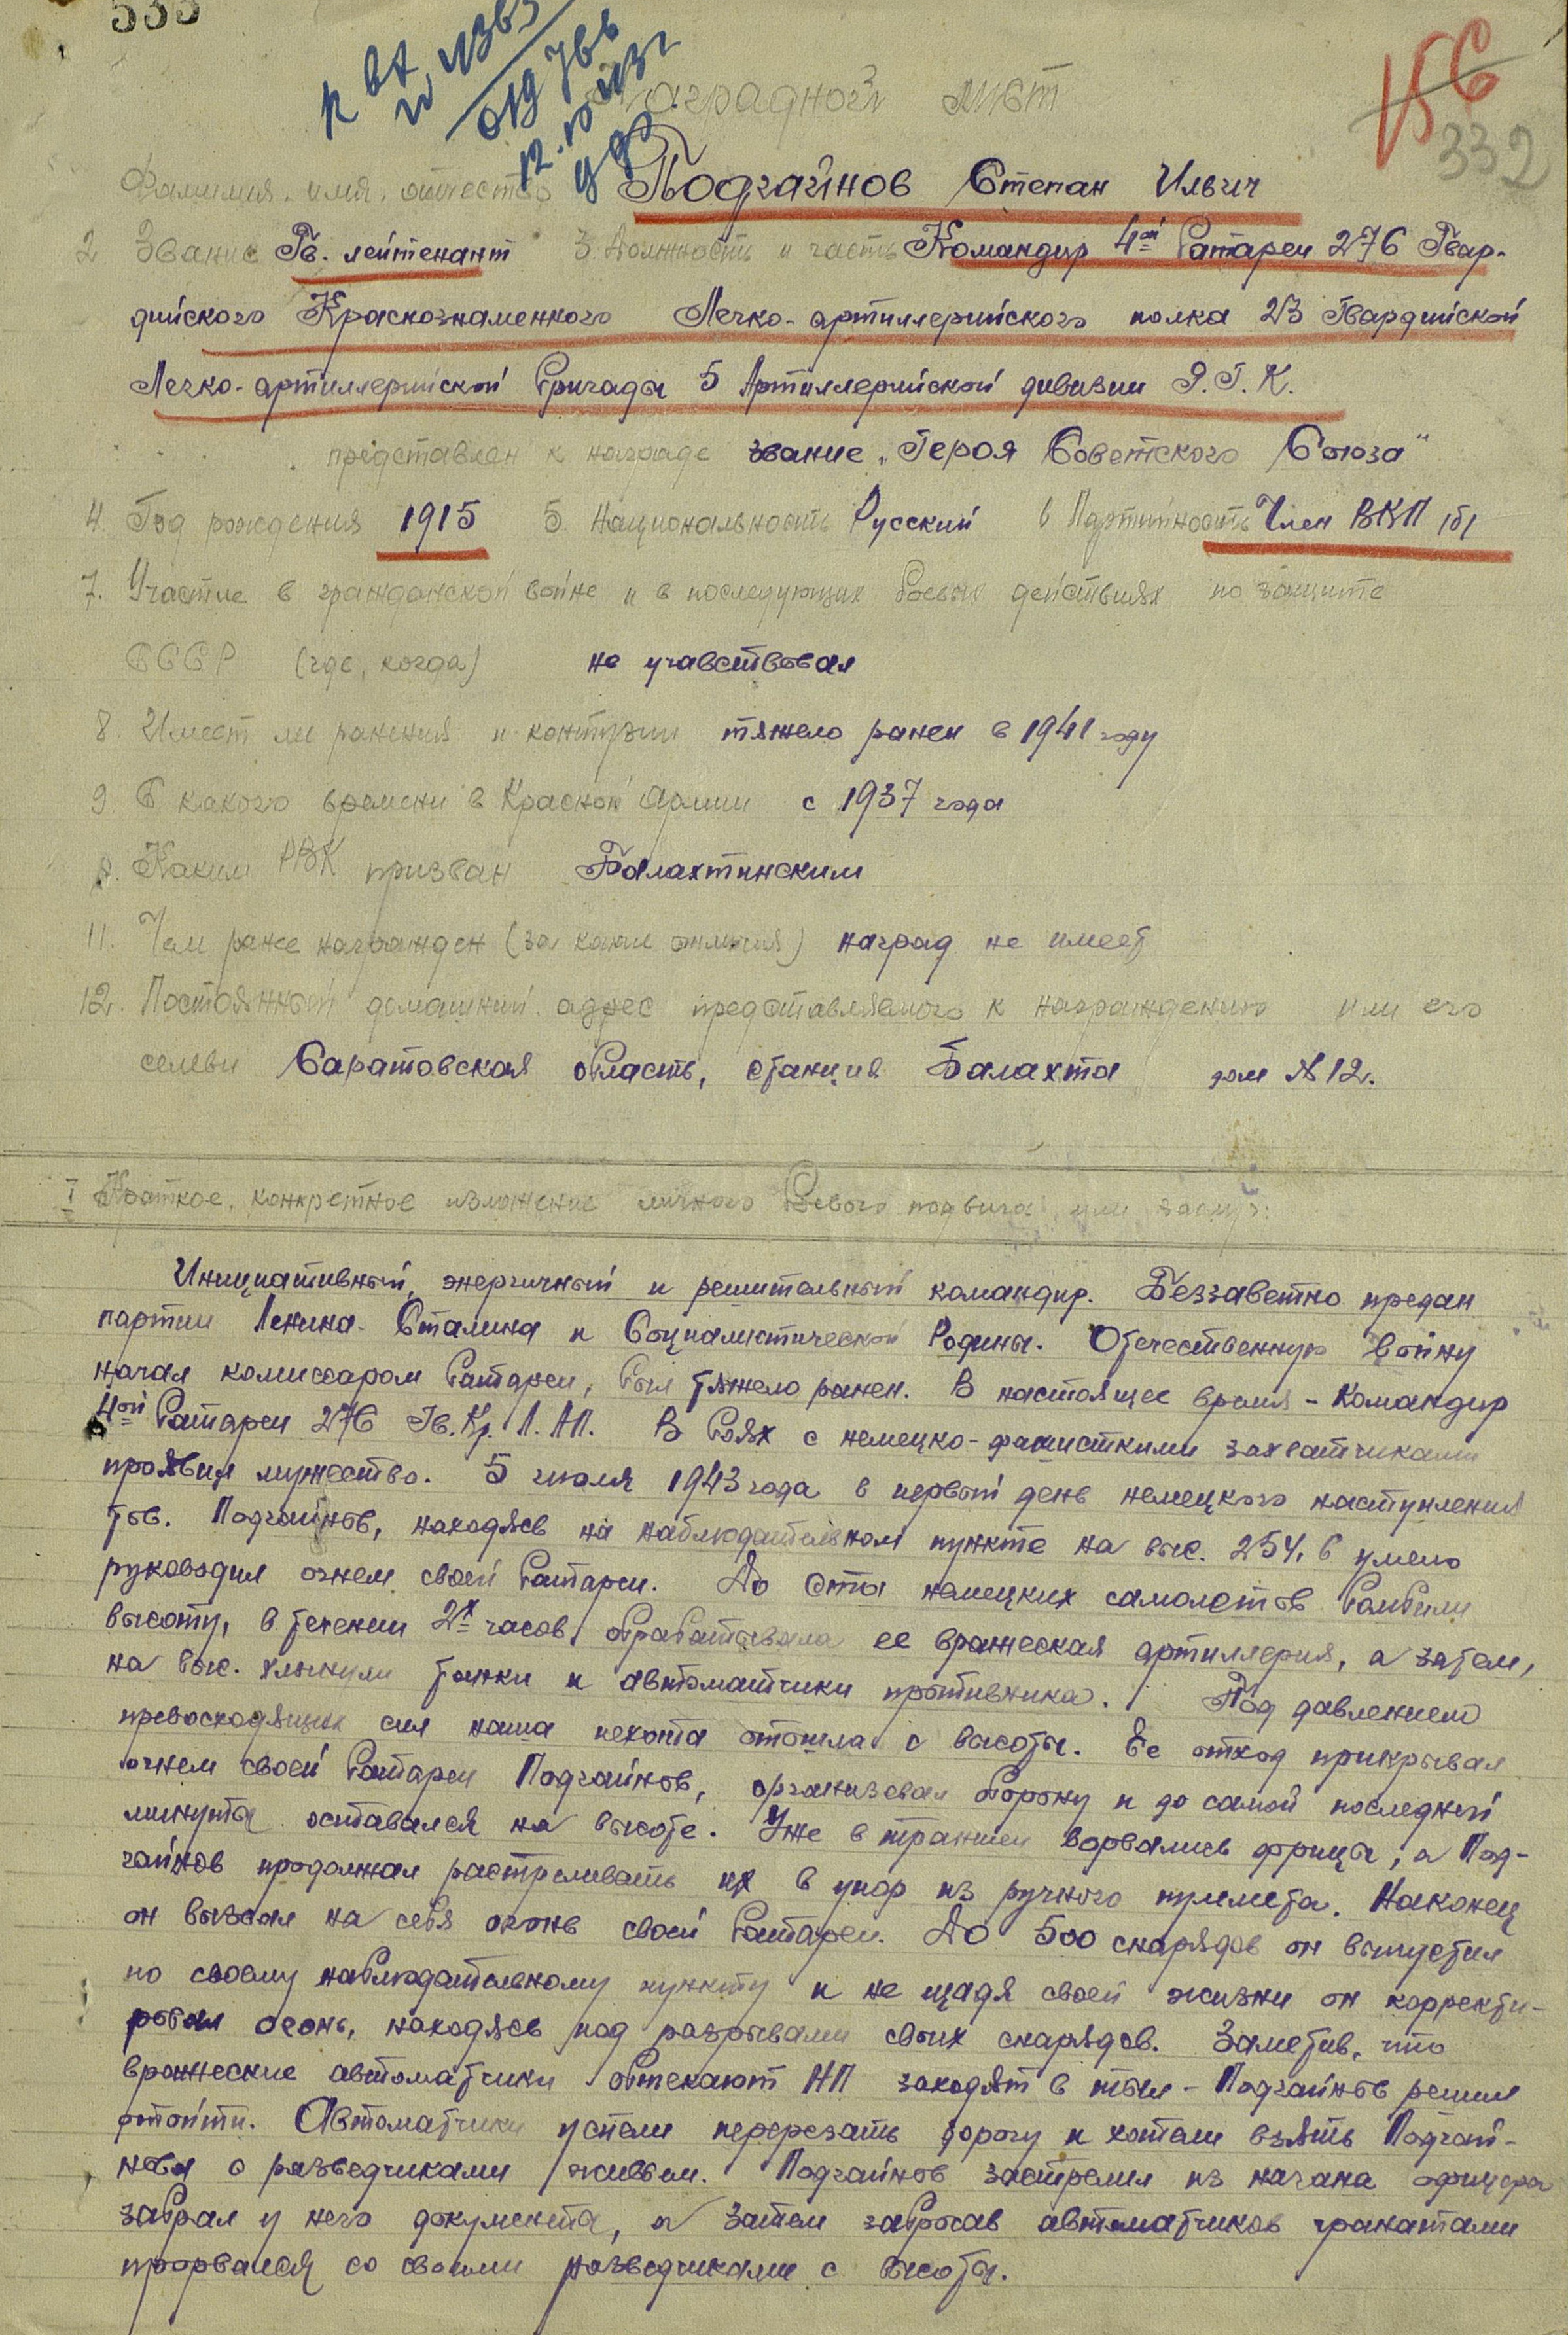 535
к вх
4363
019 766
12.10 43г
156
332
Наградной лист
Фамилия, имя, отчество Подгайнов Степан Ильич
2 Звание Гв. лейтенант 3. Должность и часть Командир 4ой батареи 276 Гвар-
дийского Краснознаменного Легко-артиллерийского полка 23 Гвардийской
Легко-артиллерийской бригады 5 Артиллерийской дивизии Р.Г.К.
представлен к награде звание „Героя Советского Союза"
4. Год рождения 1915 5. Национальность Русский 6 Партийность Член ВКП(б)
7. Участие в гражданской войне и в последующих боевых действиях по защите
СССР (где, когда) не учавствовал
8 Имеет ли ранения и контузии тяжело ранен в 1941 году
9. С какого времени в Красной Армии с 1937 года
Каким РВК призван Балахтинским
11. Чем раже награжден (за какие отличия) наград не имеет
12. Постоянный домашний адрес представляемого к награждению или его
семьи Саратовская область, станция Балахта дом №12.
I Краткое, конкретное изложение личного боевого подвига или заслуг:
Инициативный, энергичный и решительный командир. Беззаветно предан
партии Ленина-Сталина и Социалистической Родины. Отечественную войну
начал комиссаром батареи, был тяжело ранен. В настоящее время - командир
4ой батареи 276 Гв. Кр. Л.АП. В боях с немецко-фашисткими захватчиками
проявил мужество. 5 июля 1943 года в первый день немецкого наступления
тов. Подгайнов, находясь на наблюдательном пункте на выс. 254,6 умело
руководил огнем своей батареи. До ста немецких самолетов бомбили
высоту, в течении 2х часов обрабатывала ее вражеская артиллерия, а затем,
на выс. хлынули танки и автоматчики противника. Под давлением
превосходящих сил наша пехота отошла с высоты. Ее отход прикрывал
огнем своей батареи Подгайнов, организовал оборону и до самой последней
минуты оставался на высоте. Уже в траншеи ворвались фрицы, а Под-
гайнов продолжал растреливать их в упор из ручного пулемета. Наконец
он вызвал на себя огонь своей батареи. До 500 снарядов он выпустил
по своему наблюдательному пункту и не щадя своей жизни он корректи-
ровал огонь, находясь под разрывами своих снарядов. Заметив, что
вражеские автоматчики обтекают НП заходят в тыл - Подгайнов решил
отойти. Автоматчики успели перерезать дорогу и хотели взять Подгай-
нова с разведчиками живьем. Подгайнов застрелил из нагана офицера
забрал у него документы, а затем забросав автоматчиков гранатами
прорвался со своими разведчиками с высоты.